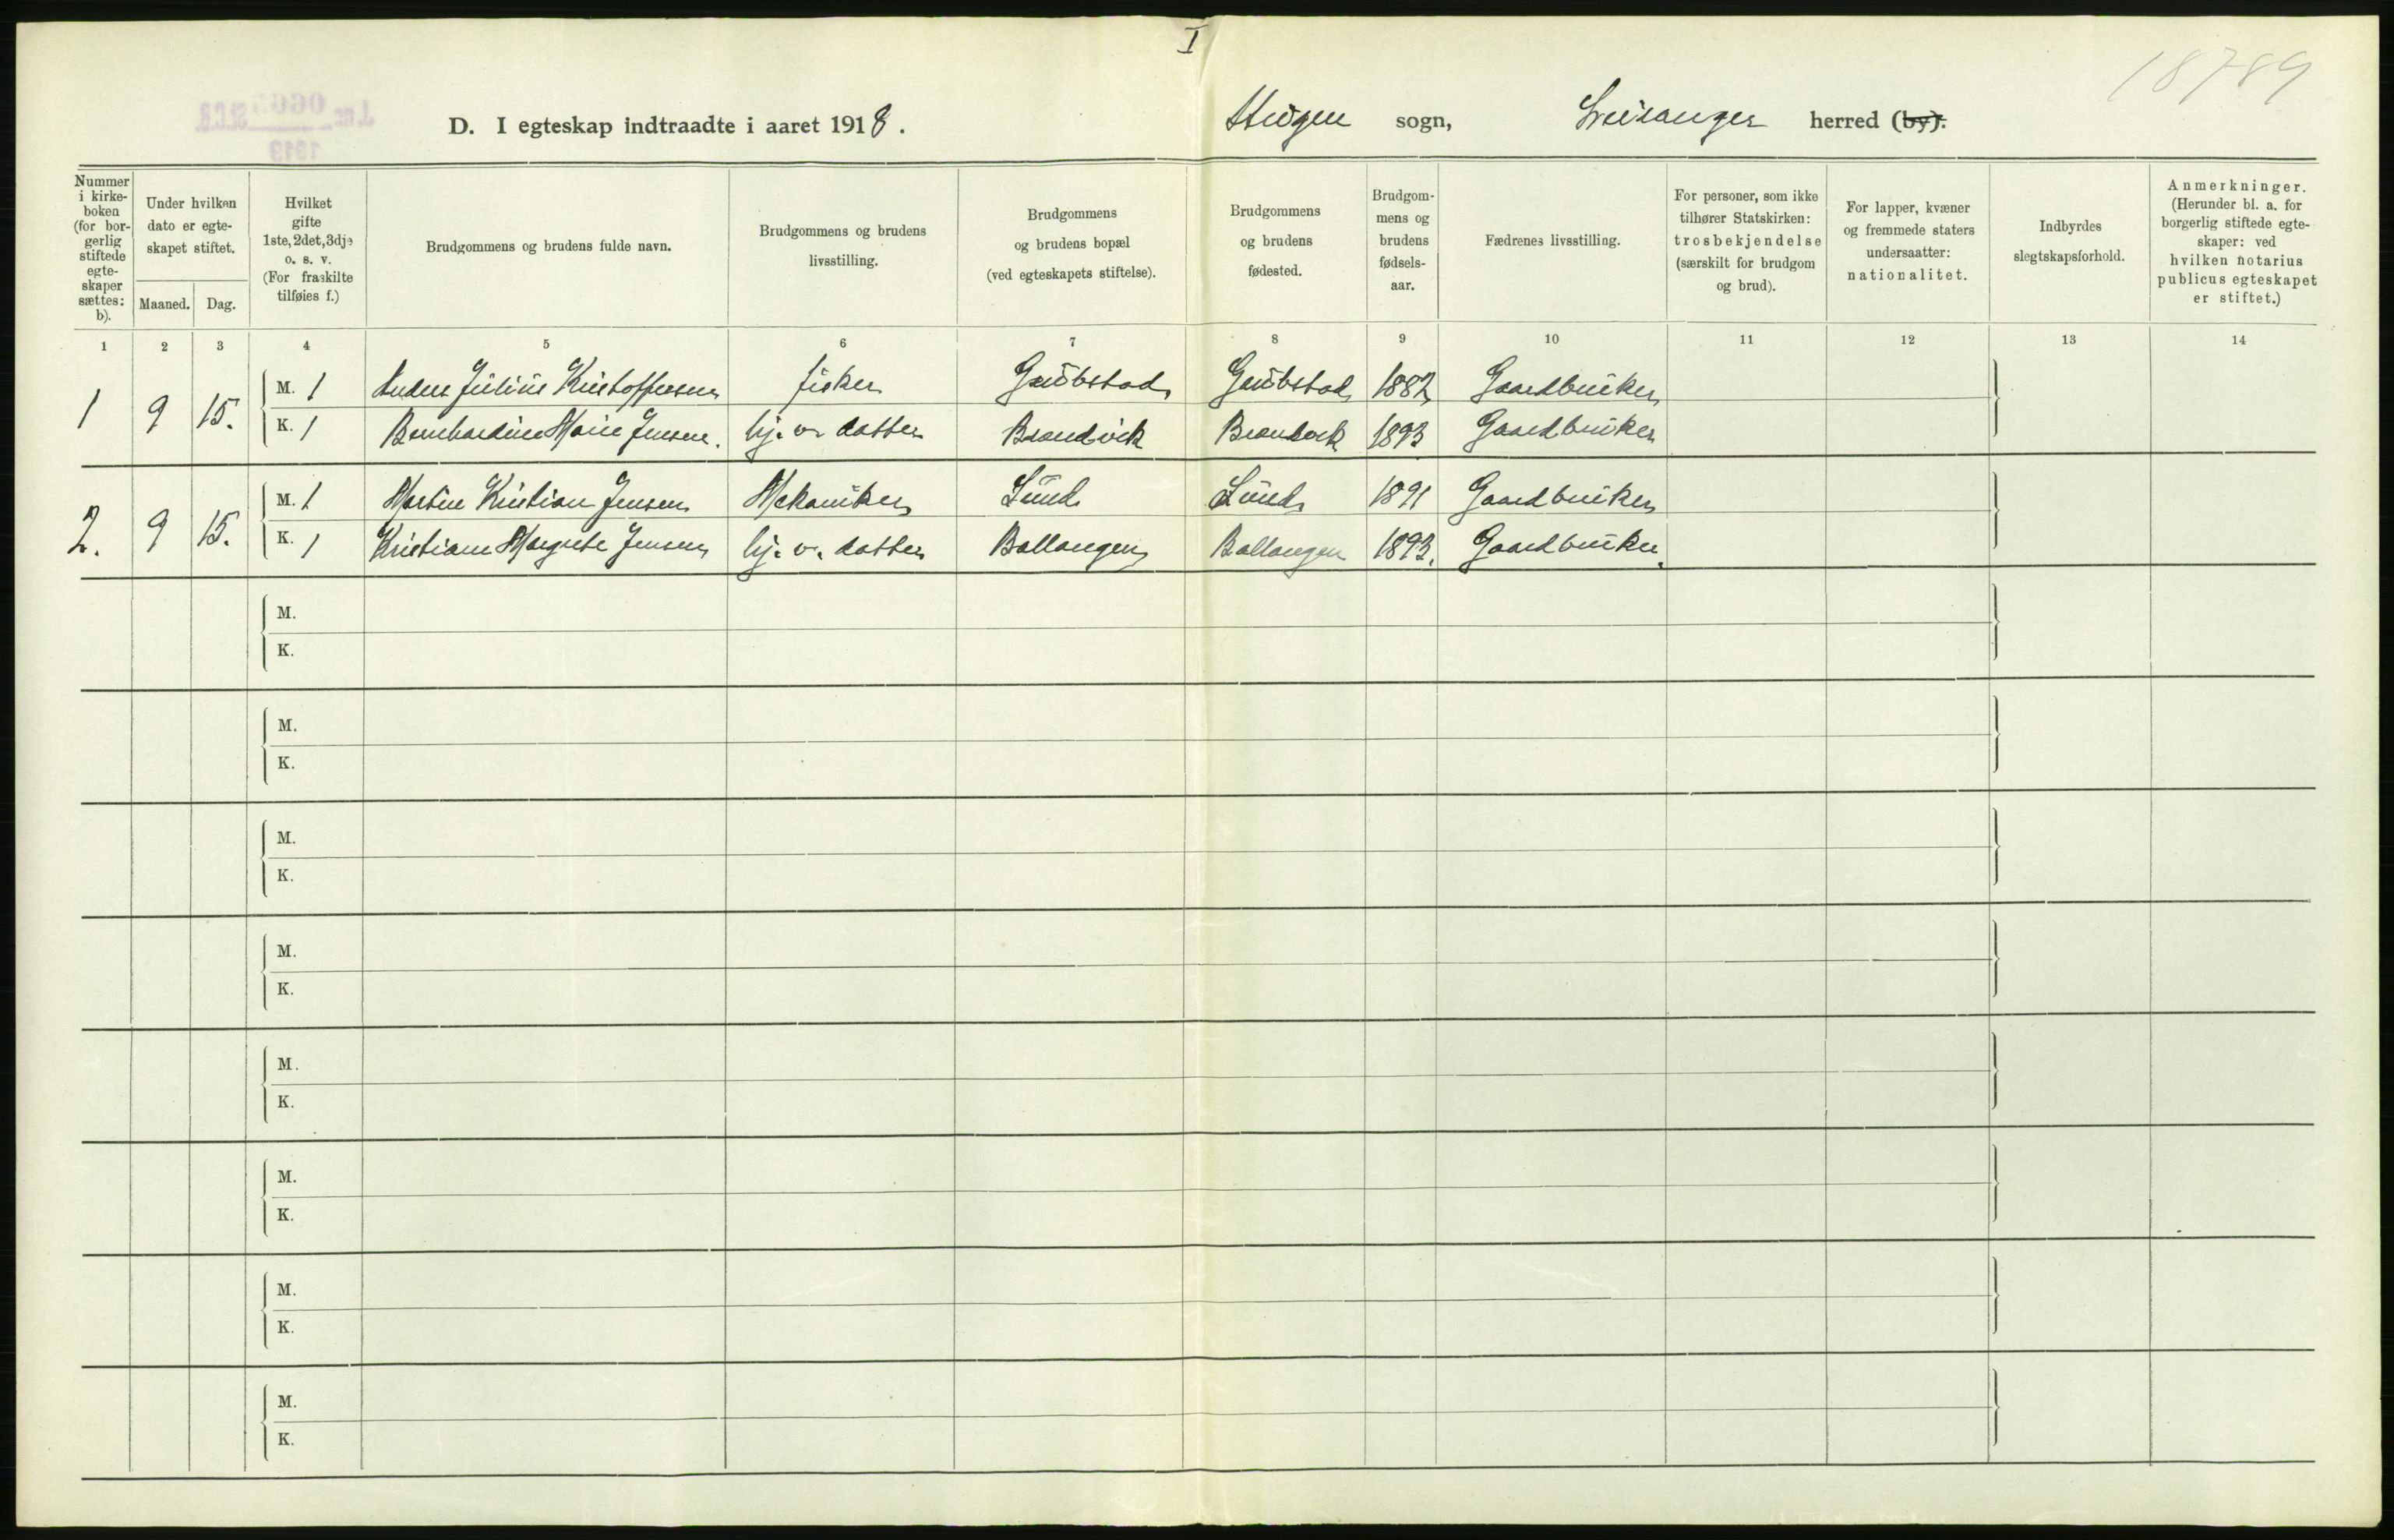 I
18789
D. I egteskap indtraadte i aaret 1918.
Steigen sogn, Leiranger herred (by).
Nummer i kirkeboken (for borgerlig stiftede egteskaper sættes: b).
Under hvilken dato er egteskapet stiftet.
Maaned. Dag.
Hvilket gifte 1ste, 2det, 3dje o. s. v. (For fraskilte tilføies f.)
Brudgommens og brudens fulde navn.
Brudgommens og brudens livsstilling.
Brudgommens og brudens bopæl (ved egteskapets stiftelse).
Brudgommens og brudens fødested.
Brudgommens og brudens fødselsaar.
Fædrenes livsstilling.
For personer, som ikke tilhører Statskirken: trosbekjendelse (særskilt for brudgom og brud).
For lapper, kvæner og fremmede staters undersaatter: nationalitet.
Indbyrdes slegtskapsforhold.
Anmerkninger. (Herunder bl. a. for borgerlig stiftede egteskaper: ved hvilken notarius publicus egteskapet er stiftet.)
1 2 3 4 5 6 7 8 9 10 11 12 13 14
1 9 15. M. 1 Anders Julius Kristoffersen fisker Grøbstad Grøbstad 1882 Gaardbruker
K. 1 Bernhardine Marie Jensen. hj. v. datter Brandvik Brandvik 1893 Gaardbruker
2. 9 15. M. 1 Martin Kristian Jensen Mekaniker Lund Lund 1891 Gaardbruker
K. 1 Kristiane Margrete Jensen hj. v. datter Ballangen Ballangen 1893. Gaardbruker.
M.
K.
M.
K.
M.
K.
M.
K.
M.
K.
M.
K.
M.
K.
M.
K.